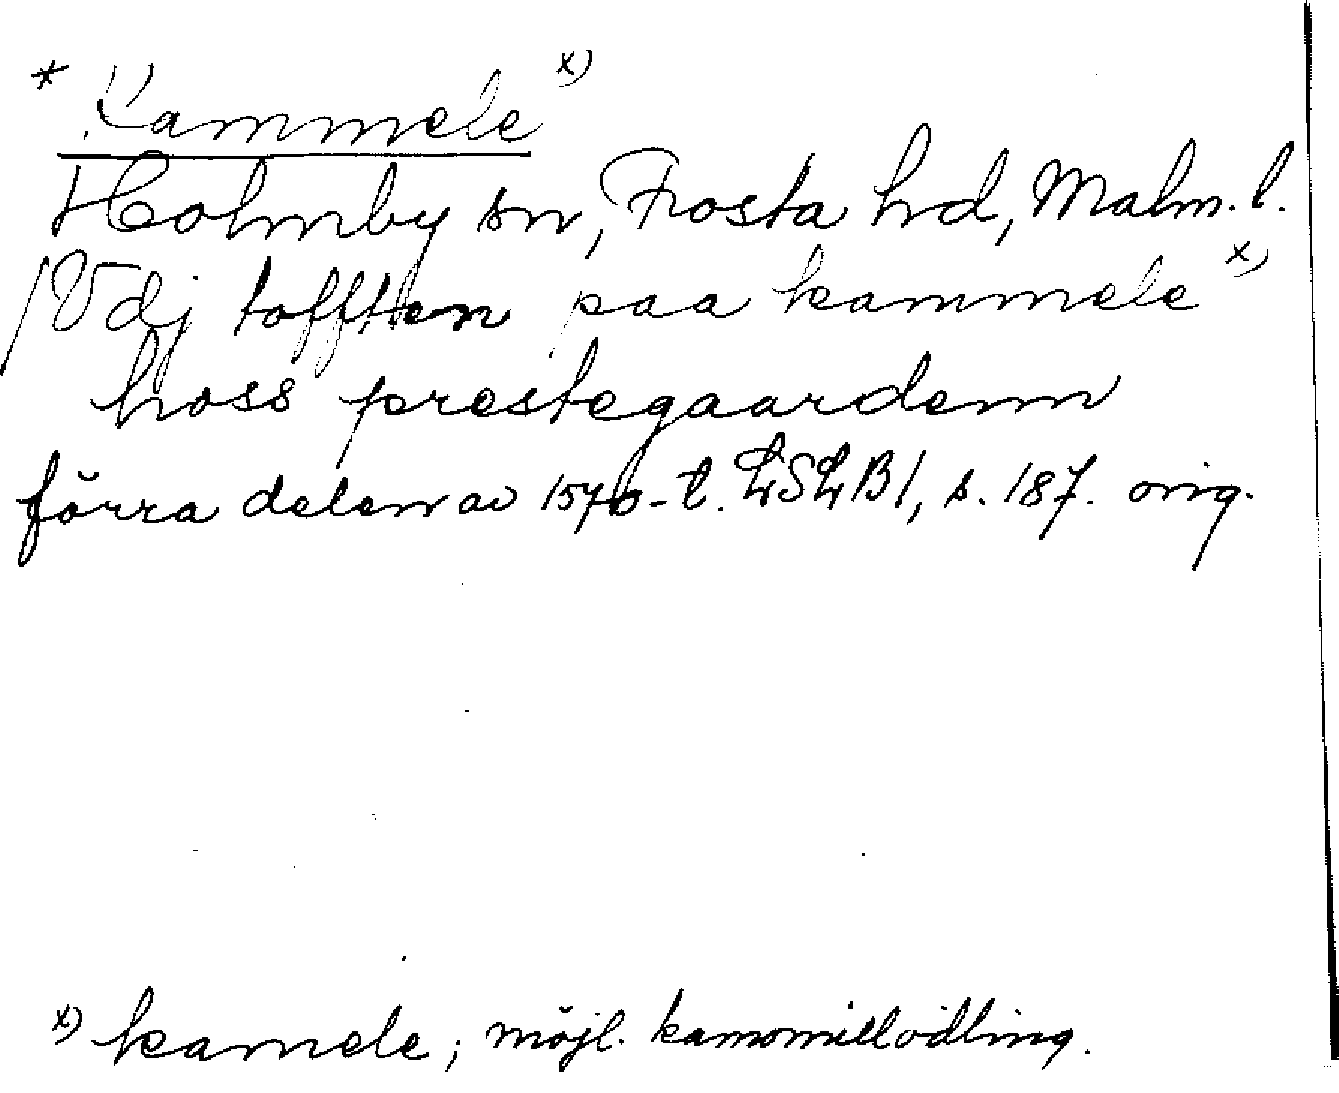 * Kammele x)
Holmby sn, Frosta hd, Malm. l.
/Vdj tofften paa kammele x)
hoss prestegaardenn
förra delen av 1570-t. LSLB1, s. 187. orig.
x) kamele; möjl. kamomillodling.